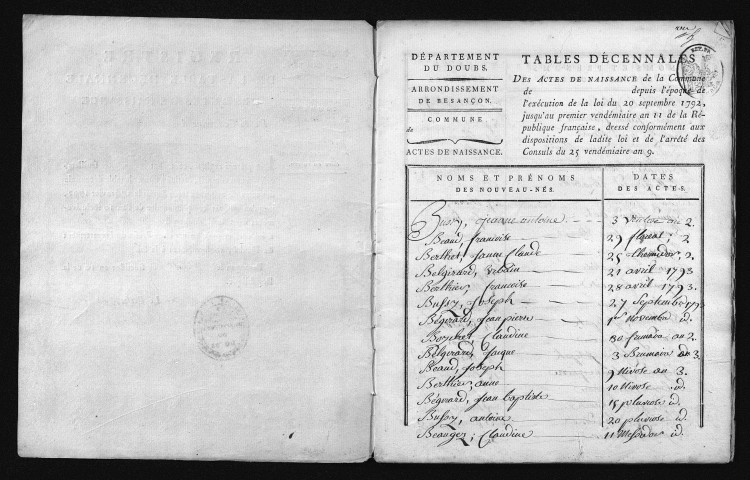 DÉPARTEMENT
DU DOUBS.
ARRONDISSEMENT
DE BESANÇON.
COMMUNE
de
ACTES DE NAISSANCE.
TABLES DÉCENNALES
DES ACTES DE NAISSANCE de la Commune
de depuis l'époque de
l'exécution de la loi du 20 septembre 1792,
jusqu'au premier vendémiaire an 11 de la Ré-
publique française, dressé conformément aux
dispositions de ladite loi et de l'arrêté des
Consuls du 25 vendémiaire an 9.
NOMS ET PRÉNOMS
DES NOUVEAU-NÉS.
DATES
DES ACTES.
Bussy, jeanne antoine 3 Ventose an 2.
Beaud, francoise 29 floreal; 2
Berthet, jeanne Claude 25 thermidor, 2.
Belgirard, urbain 21 avril 1793
Berthier, francoise 28 avril 1793.
Bussy, joseph 27 Septembre 1793
Bégirard, jean pierre 1er Novembre id.
Claudine 30 frimaire an 2.
Belgirard, jacque 3 Brumaire an 3.
Beaud, joseph 9 Nivose an 3.
Berthier, anne 10 Nivose id.
Bégirard, jean baptiste 15 pluviose id.
Bussy, antoine 20 pluviose id.
Claudine 11 Messidor id.